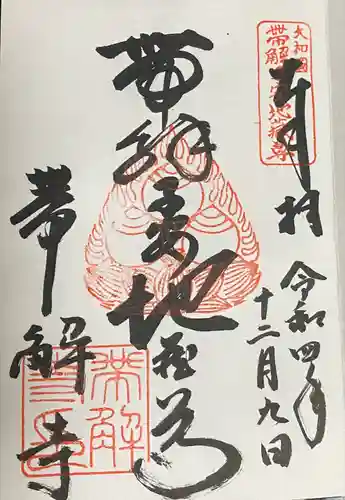 奉拝
令和四年
十二月九日
帯解子安地蔵尊
帯解寺
大和國
帯解子安地蔵尊